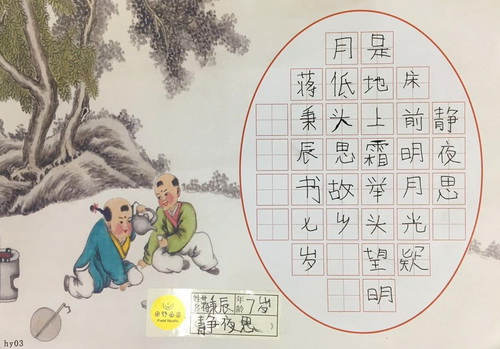 静夜思
床前明月光疑
是地上霜举头望明
月低头思故乡
蒋秉辰书七岁
Field Studio
姓名 秉辰 年龄 7岁
静夜思
hy03